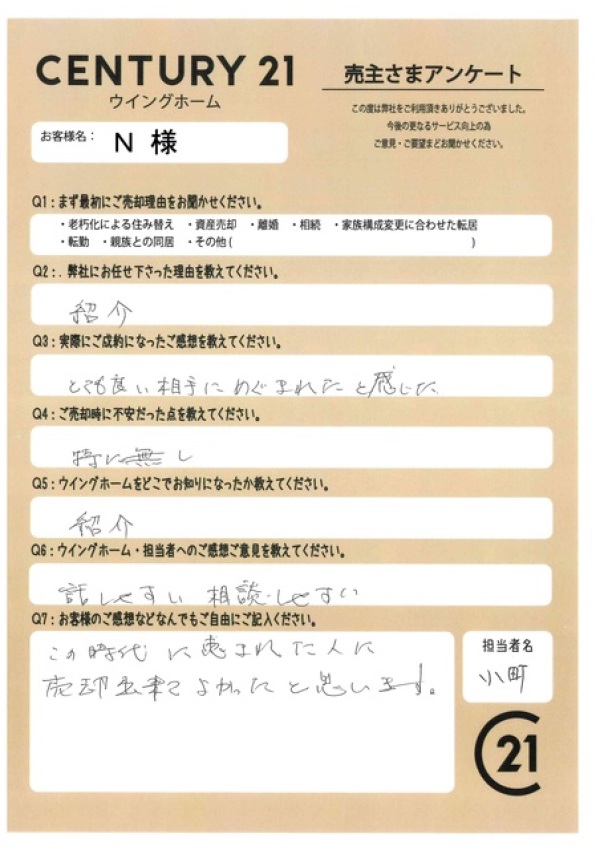 CENTURY 21
ウイングホーム
売主さまアンケート
この度は弊社をご利用頂きありがとうございました。
今後の更なるサービス向上の為
ご意見・ご要望まどお聞かせください。
お客様名： N 様
Q1：まず最初にご売却理由をお聞かせください。
・老朽化による住み替え ・資産売却 ・離婚 ・相続 ・家族構成変更に合わせた転居
・転勤 ・親族との同居 ・その他( )
Q2：. 弊社にお任せ下さった理由を教えてください。
紹介
Q3：実際にご成約になったご感想を教えてください。
とても良い相手にめぐまれたと感じた
Q4：ご売却時に不安だった点を教えてください。
特に無し
Q5：ウイングホームをどこでお知りになったか教えてください。
紹介
Q6：ウイングホーム・担当者へのご感想ご意見を教えてください。
話しやすい 相談しやすい
Q7：お客様のご感想などなんでもご自由にご記入ください。
この時代に恵まれた人に
売却出来てよかったと思います。
担当者名
小町
21